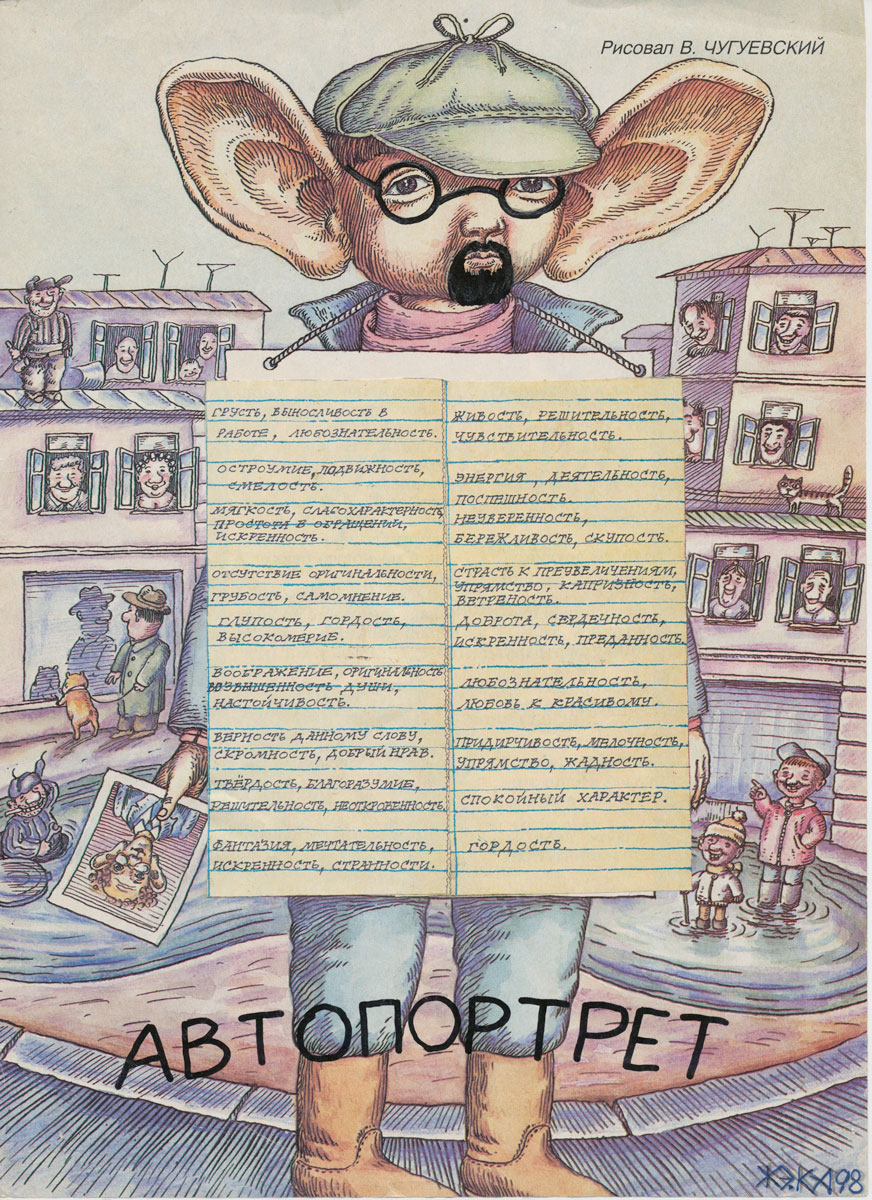 Рисовал В. ЧУГУЕВСКИЙ
ГРУСТЬ, ВЫНОСЛИВОСТЬ В
РАБОТЕ, ЛЮБОЗНАТЕЛЬНОСТЬ.
ОСТРОУМИЕ, ПОДВИЖНОСТЬ,
СМЕЛОСТЬ.
МЯГКОСТЬ, СЛАБОХАРАКТЕРНОСТЬ
ПРОСТОТА В ОБРАЩЕНИИ,
ИСКРЕННОСТЬ.
ОТСУТСТВИЕ ОРИГИНАЛЬНОСТИ,
ГРУБОСТЬ, САМОМНЕНИЕ.
ГЛУПОСТЬ, ГОРДОСТЬ,
ВЫСОКОМЕРИЕ.
ВООБРАЖЕНИЕ, ОРИГИНАЛЬНОСТЬ
ВОЗВЫШЕННОСТЬ ДУШИ,
НАСТОЙЧИВОСТЬ.
ВЕРНОСТЬ ДАННОМУ СЛОВУ,
СКРОМНОСТЬ, ДОБРЫЙ НРАВ.
ТВЁРДОСТЬ, БЛАГОРАЗУМИЕ,
РЕШИТЕЛЬНОСТЬ, НЕОТКРОВЕННОСТЬ.
ФАНТАЗИЯ, МЕЧТАТЕЛЬНОСТЬ,
ИСКРЕННОСТЬ, СТРАННОСТИ.
ЖИВОСТЬ, РЕШИТЕЛЬНОСТЬ,
ЧУВСТВИТЕЛЬНОСТЬ.
ЭНЕРГИЯ, ДЕЯТЕЛЬНОСТЬ,
ПОСПЕШНОСТЬ.
НЕУВЕРЕННОСТЬ,
БЕРЕЖЛИВОСТЬ, СКУПОСТЬ.
СТРАСТЬ К ПРЕУВЕЛИЧЕНИЯМ,
УПРЯМСТВО, КАПРИЗНОСТЬ,
ВЕТРЕНОСТЬ.
ДОБРОТА, СЕРДЕЧНОСТЬ,
ИСКРЕННОСТЬ, ПРЕДАННОСТЬ.
ЛЮБОЗНАТЕЛЬНОСТЬ,
ЛЮБОВЬ К КРАСИВОМУ.
ПРИДИРЧИВОСТЬ, МЕЛОЧНОСТЬ,
УПРЯМСТВО, ЖАДНОСТЬ.
СПОКОЙНЫЙ ХАРАКТЕР.
ГОРДОСТЬ.
АВТОПОРТРЕТ